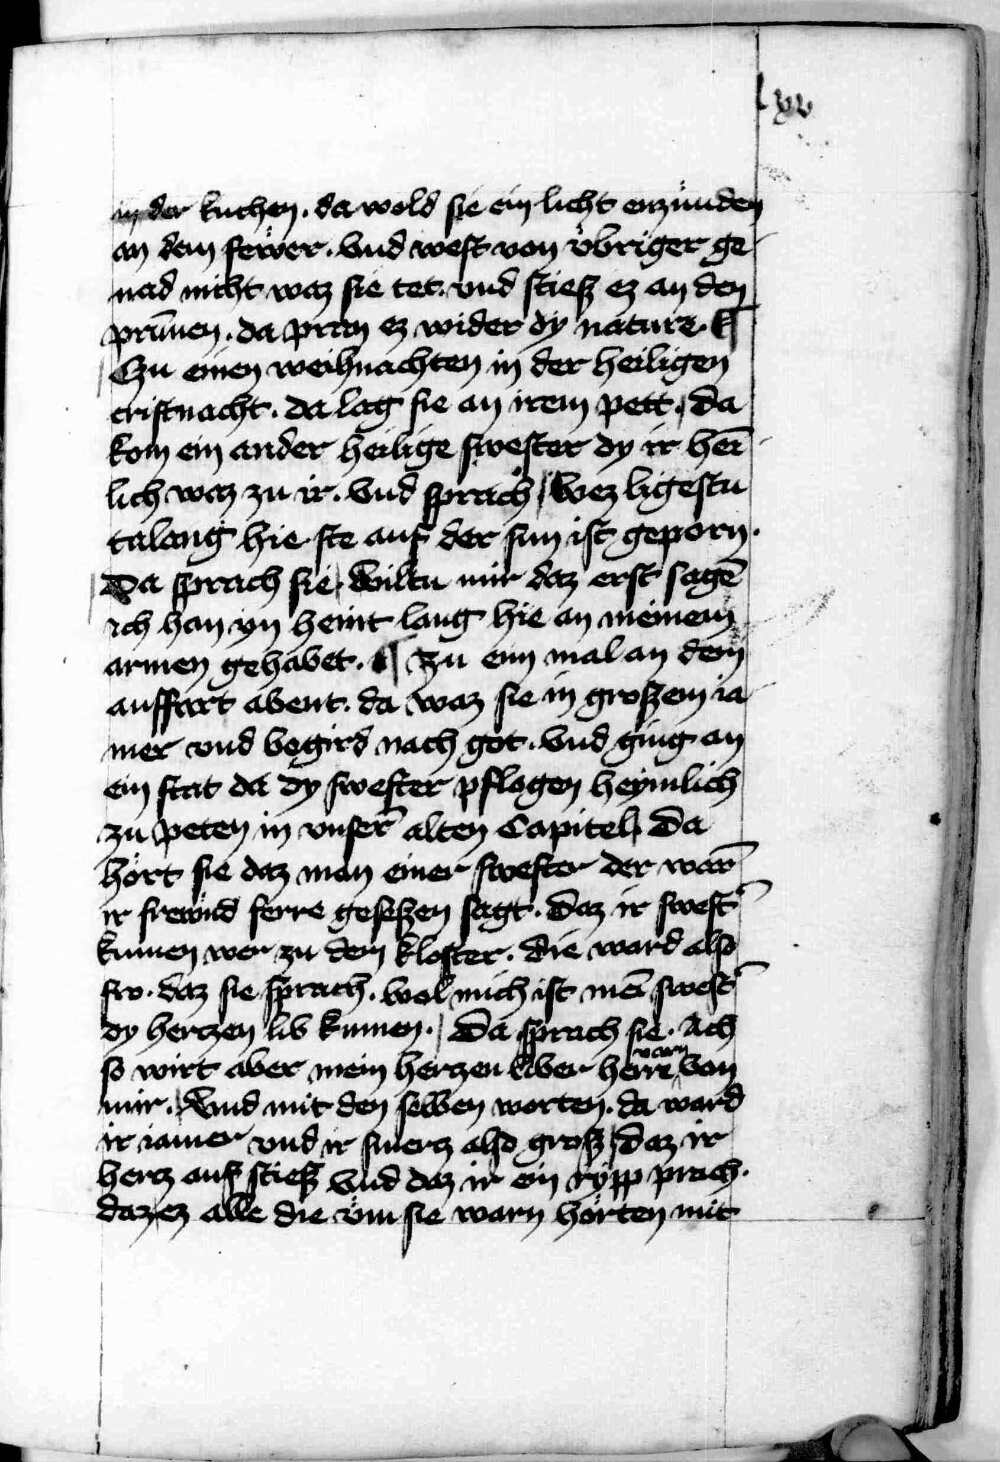 lxv
in der kuchen. da wold sie ein licht enzünden
an dem fewer. vnd west von vbriger ge
nad nicht waz sie tet. vnd stiesz ez an den
prūnen. da pran ez wider dy nature. ¶
Czu einen weihnachten in der heiligen
cristnacht. da lag sie an irem pett. da
kom ein ander heilige swester dy ir hei
lich waz zu ir. vnd sprach wez ligestu
talang hie. ste auf der sun ist geporn.
Da sprach sie. wiltu mir daz erst sagē
ich han yn heint lang hie an meinem
armen gehabet. ¶ Zu eim mal an dem
auffart abent. da waz sie in groszem ia
mer vnd begird nach got. vnd ging an
ein stat da dy swester pflogen heymlich
zu peten in vnser alten Capitel. Da
hört sie daz man einer swester der warn̄
ir frewnd ferre geseszen sagt. Daz ir swest̄
kumen wer zu dem kloster. die ward also
fro. daz sie sprach. wol mich ist mein swest̄
dy hertzen lib kumen. Da sprach sie. Ach
so wirt aber mein hertzen liber herre varn von
mir. Vnd mit den selben worten. da ward
ir iamer vnd ir smertz also grosz daz ir
hertz auf stiesz vnd daz ir ein rypp prach.
daz ez alle die vm sie warn hörten mit